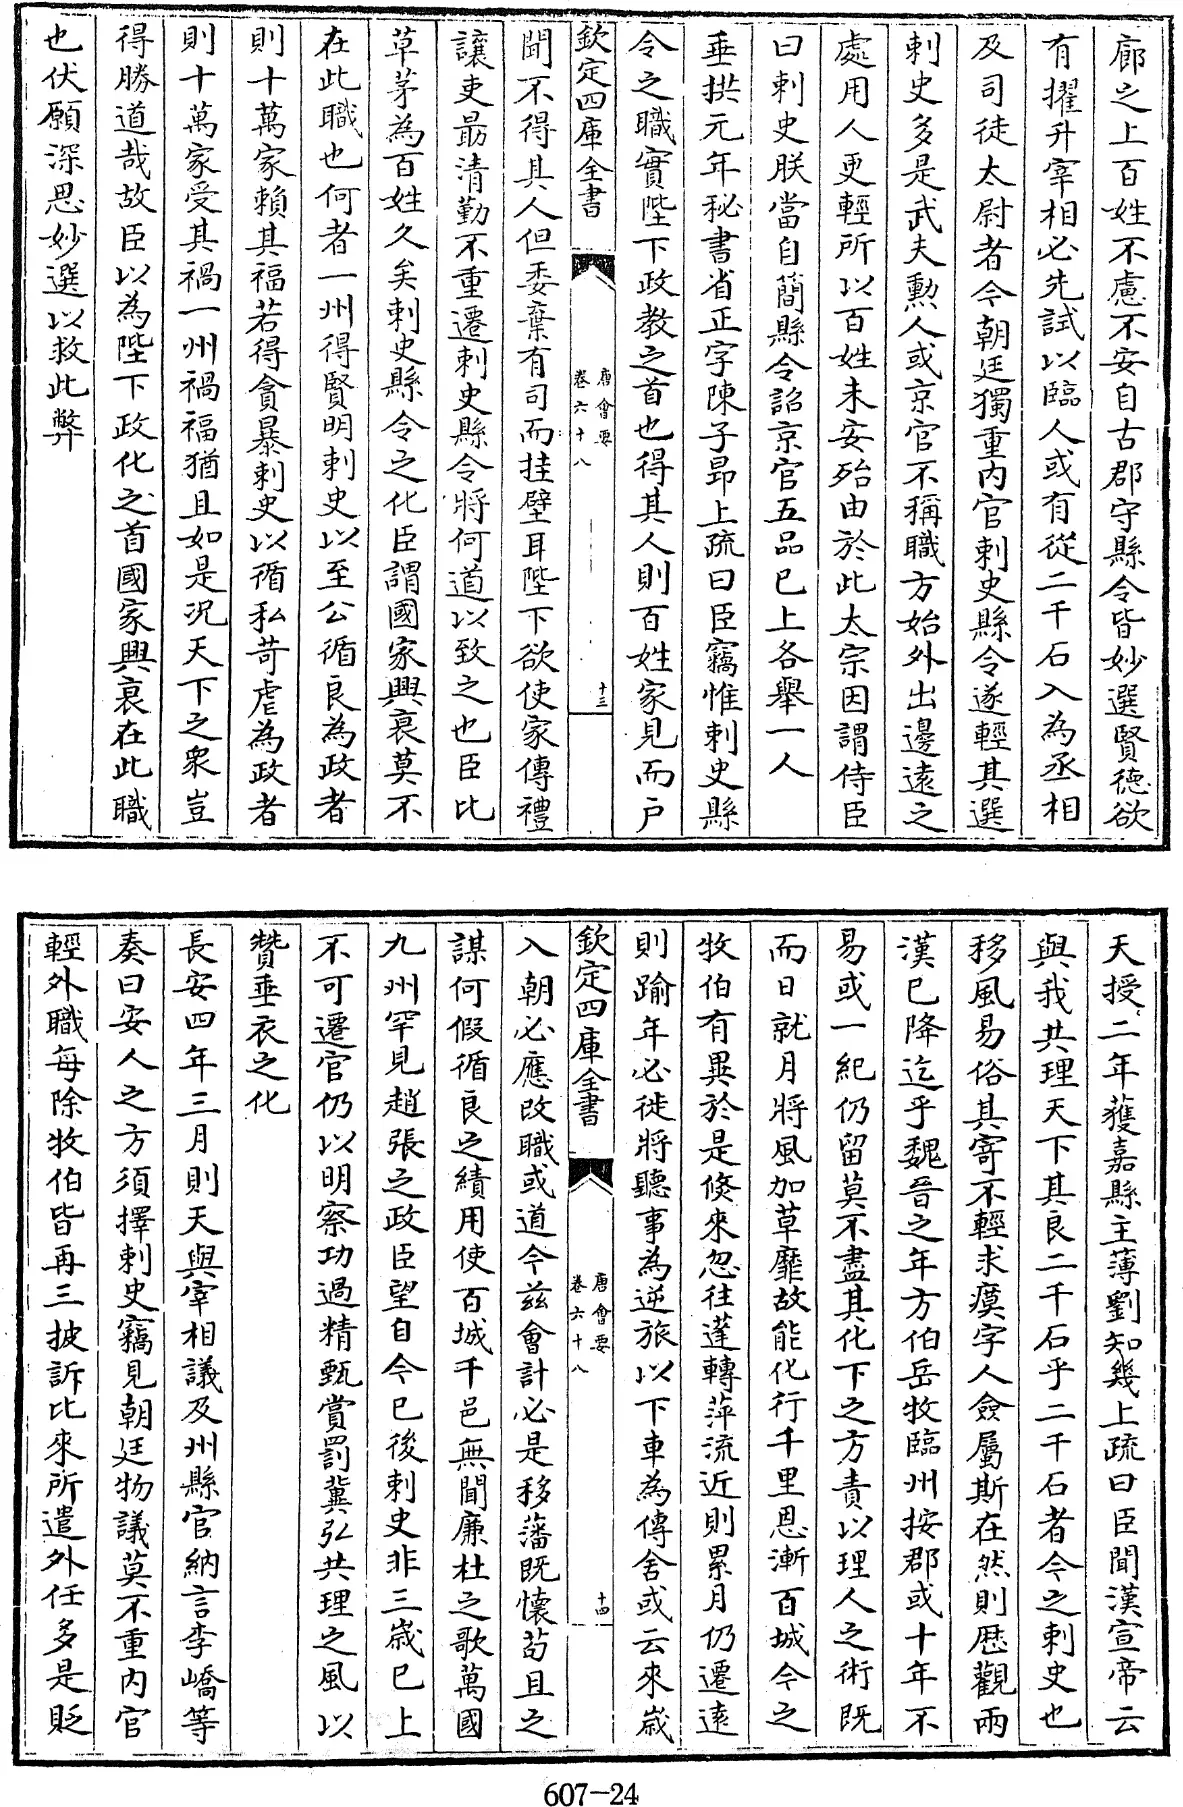 廊之上百姓不慮不安自古郡守縣令皆妙選賢德欲
有擢升宰相必先試以臨人或有從二千石入為丞相
及司徒太尉者今朝廷獨重内官刺史縣令遂輕其選
刺史多是武夫勲人或京官不稱職方始外出邊遠之
處用人更輕所以百姓未安殆由於此太宗因謂侍臣
曰刺史朕當自簡縣令詔京官五品已上各舉一人
垂拱元年秘書省正字陳子昻上疏曰臣竊惟刺史縣
令之職實陛下政教之首也得其人則百姓家見而户
欽定四庫全書
唐會要
卷六十八
十三
聞不得其人但委棄有司而挂壁耳陛下欲使家傳禮
讓吏朂清勤不重選刺史縣令將何道以致之也臣比
草茅為百姓久矣刺史縣令之化臣謂國家興衰莫不
在此職也何者一州得賢明刺史以至公循良為政者
則十萬家賴其福若得貪暴刺史以循私苛虐為政者
則十萬家受其禍一州禍福猶且如是况天下之衆豈
得勝道哉故臣以為陛下政化之首國家興衰在此職
也伏願深思妙選以救此弊
天授二年獲嘉縣主薄劉知幾上疏曰臣聞漢宣帝云
與我共理天下其良二千石乎二千石者今之刺史也
移風易俗其寄不輕求瘼字人僉屬斯在然則歴觀兩
漢已降迄乎魏晉之年方伯岳牧臨州按郡或十年不
易或一紀仍留莫不盡其化下之方責以理人之術既
而日就月將風加草靡故能化行千里恩漸百城今之
牧伯有異於是倐來忽往蓬轉萍流近則累月仍遷遠
則踰年必徙將聽事為逆旅以下車為傳舍或云來嵗
欽定四庫全書
唐會要
卷六十八
十四
入朝必應改職或道今兹會計必是移藩既懷茍且之
謀何假循良之績用使百城千邑無聞廉杜之歌萬國
九州罕見趙張之政臣望自今已後刺史非三嵗已上
不可遷官仍以明察功過精甄賞罰冀弘共理之風以
贊垂衣之化
長安四年三月則天與宰相議及州縣官納言李嶠等
奏曰安人之方須擇刺史竊見朝廷物議莫不重内官
輕外職每除牧伯皆再三披訴比來所遣外任多是貶
607-24